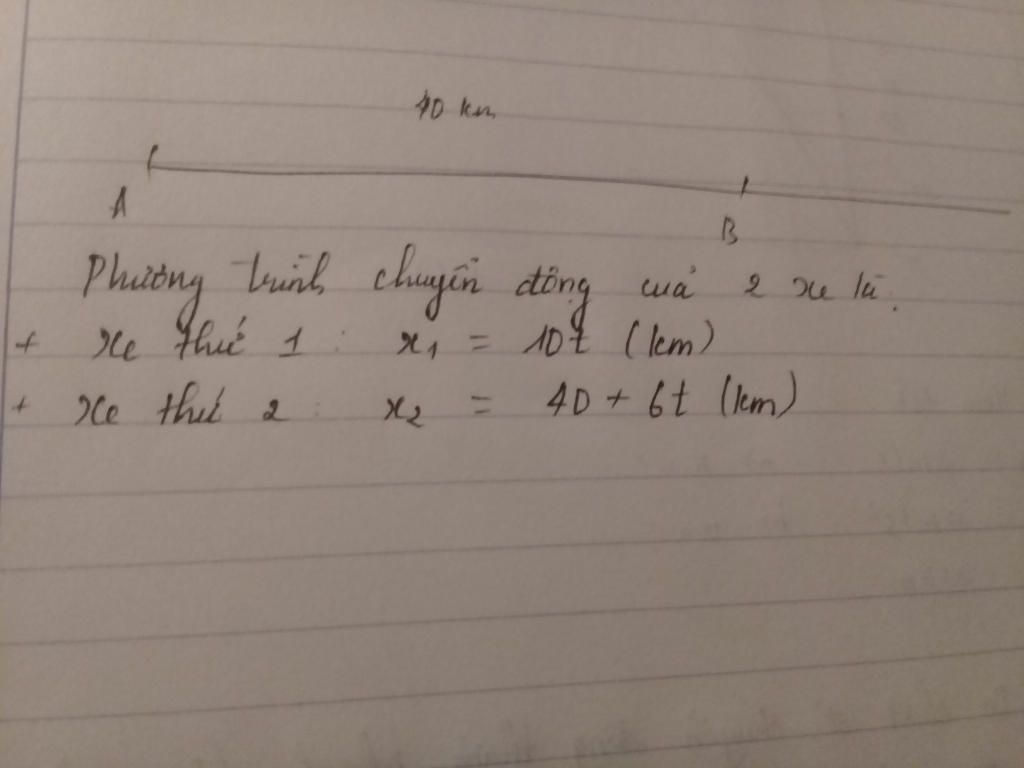 40 km
A
B
Phương trình chuyển động của 2 xe là:
+ xe thứ 1 : x₁ = 10t (km)
+ xe thứ 2 : x₂ = 40 + 6t (km)